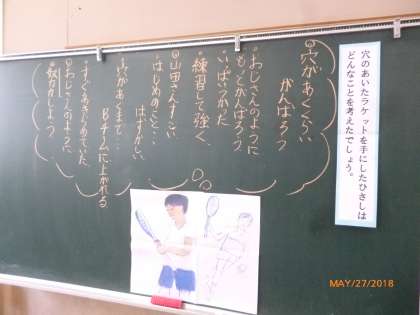 穴のあいたラケットを手にしたひさしは
どんなことを考えたでしょう。
穴があくくらい
がんばろう
・おじさんのように
もっとがんばろう
・いっぱいつかった
・練習して強く
山田さんすごい
はじめのこと…
はずかしい
穴があくまで…
Bチームに上がれる
・すぐあきらめていた
おじさんのように
努力しよう
MAY/27/2018